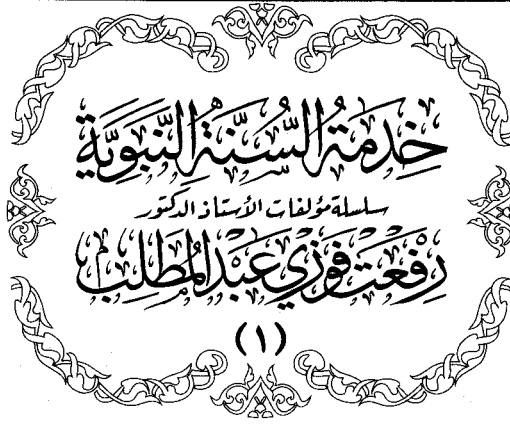 خِدْمَةُ السُّنَّةِ النَّبَوِيَّةِ
سلسلة مؤلفات الأستاذ الدكتور
رِفْعَت فَوْزِي عَبْدُ المُطَّلِب
(١)